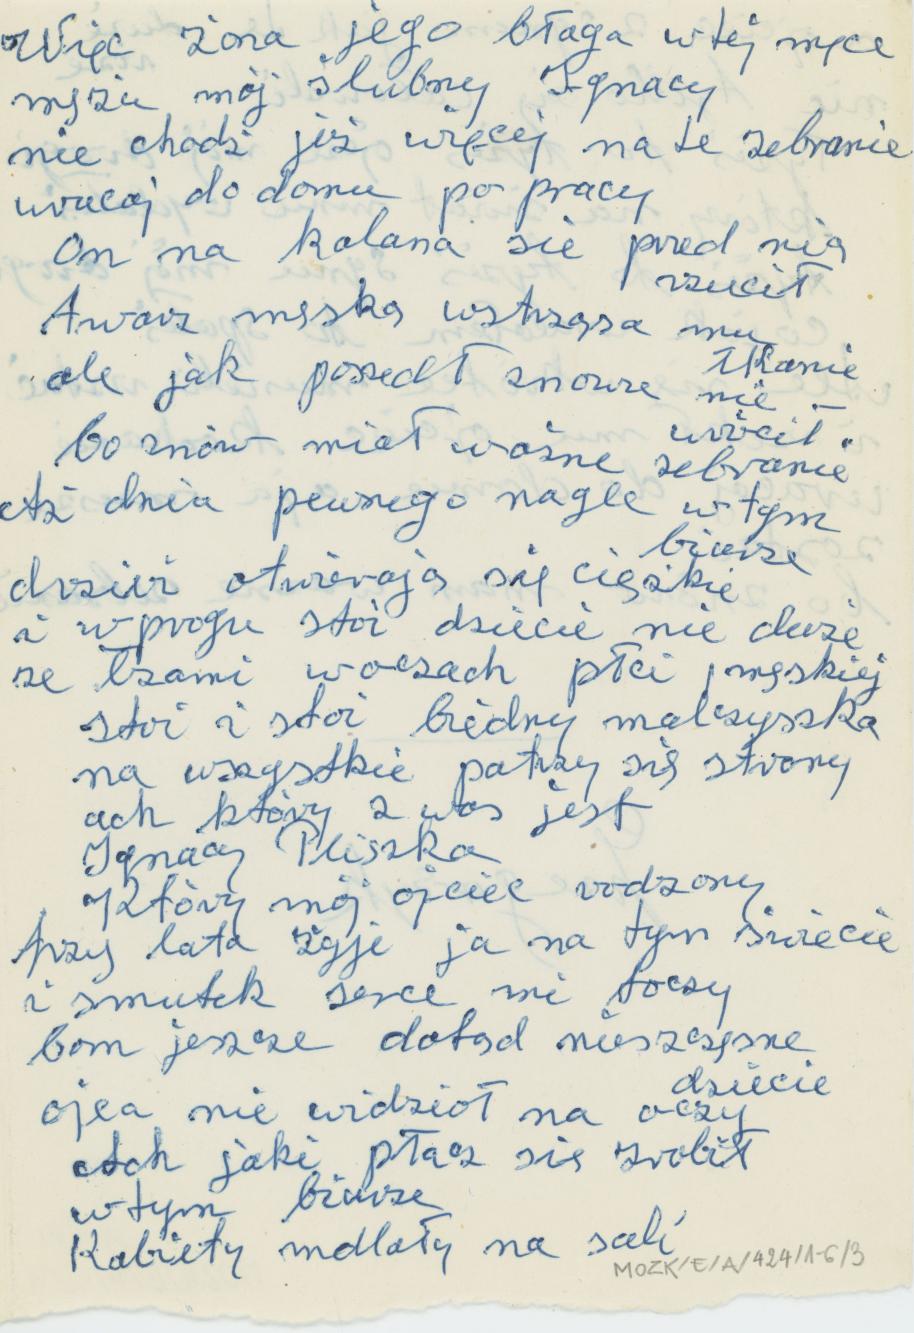 Więc żona jego błaga w tej męce
mężu mój ślubny Ignacy
nie chodź już więcej na te zebranie
wracaj do domu po pracy
On na kolana sie pred nią
rzucił
twarz męską wstrząsa mu
łkanie
ale jak poszedł znowu nie
wrócił.
bo znów miał ważne zebranie
Aż dnia pewnego nagle w tym
biurze
drzwi otwierają się ciężkie
i w progu stoi dziecie nie duże
ze łzami w oczach płci męskiej
stoi i stoi biedny malczyszka
na wszystkie patrzy się strony
ach który z was jest
Ignacy Pliszka
Który mój ojciec rodzony
trzy lata żyje ja na tym świecie
i smutek serce mi toczy
bom jeszcze dotąd nieszczęsne
dziecie
ojca nie widział na oczy
Ach jaki płacz się zrobił
w tym biurze
Kobiety mdlały na sali
MOZK/E/A/424/1-6/3